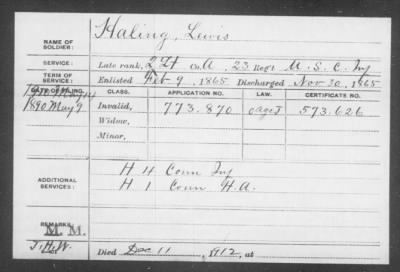 NAME OF SOLDIER: Haling, Lewis
SERVICE: Late rank, 2 Lt Co. A, 23 Reg't U.S.C. Inf
TERM OF SERVICE: Enlisted Feb 9, 1865 Discharged Nov 30, 1865
DATE OF FILING. CLASS. APPLICATION NO. LAW. CERTIFICATE NO.
1890 May 9 Invalid, 773.870 573.626
Widow,
Minor,
ADDITIONAL SERVICES: H 4 Conn Inf
H 1 Conn H.A.
REMARKS: M. M.
Died Dec 11, 1912, at